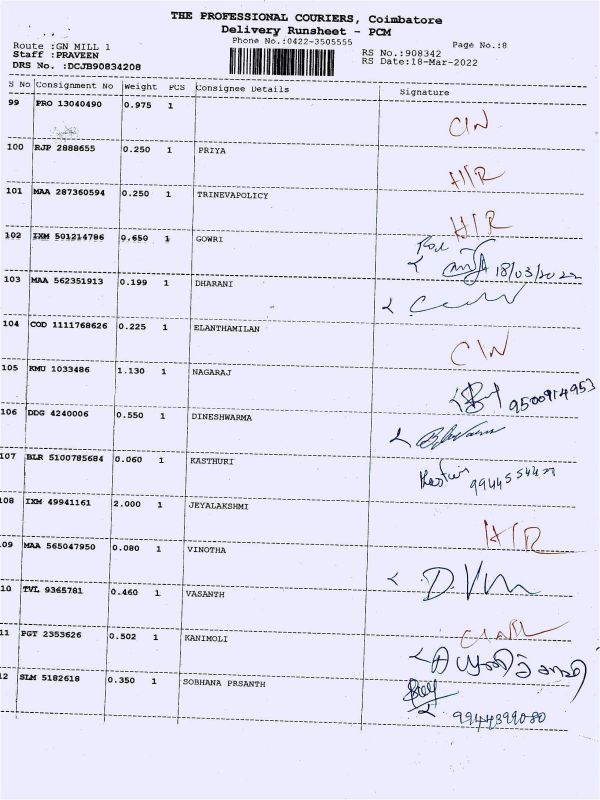 THE PROFESSIONAL COURIERS, Coimbatore
Delivery Runsheet - PCM
Phone No.:0422-3505555
Page No.:8
Route :GN MILL 1
Staff :PRAVEEN
DRS No. :DCJB90834208
RS No.:908342
RS Date:18-Mar-2022
S No Consignment No Weight PCS Consignee Details Signature
99 PRO 13040490 0.975 1
C/N
100 RJP 2888655 0.250 1 PRIYA
H/R
101 MAA 287360594 0.250 1 TRINEVAPOLICY
H/R
102 IXM 501214786 0.650 1 GOWRI
18/03/2022
103 MAA 562351913 0.199 1 DHARANI
104 COD 1111768626 0.225 1 ELANTHAMILAN
C/N
105 KMU 1033486 1.130 1 NAGARAJ
9500914953
106 DDG 4240006 0.550 1 DINESHWARMA
107 BLR 5100785684 0.060 1 KASTHURI
108 IXM 49941161 2.000 1 JEYALAKSHMI
H/R
09 MAA 565047950 0.080 1 VINOTHA
10 TVL 9365781 0.460 1 VASANTH
11 PGT 2353626 0.502 1 KANIMOLI
12 SLM 5182618 0.350 1 SOBHANA PRSANTH
9944399080